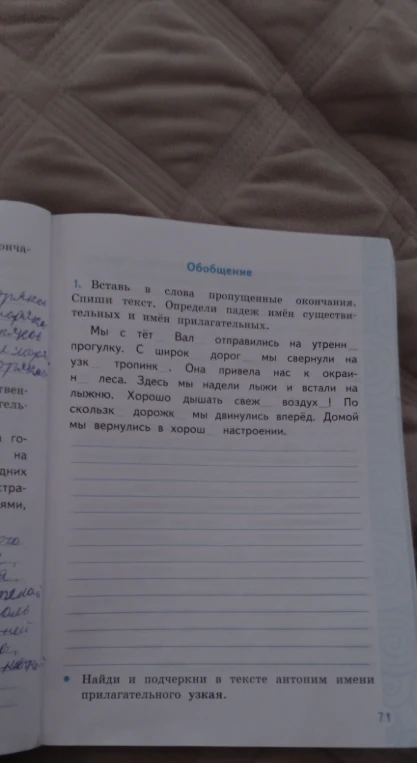 онча-
Обобщение
1. Вставь в слова пропущенные окончания.
Спиши текст. Определи падеж имён существи-
тельных и имён прилагательных.
Мы с тёт_ Вал_ отправились на утренн_
прогулку. С широк_ дорог_ мы свернули на
узк_ тропинк_. Она привела нас к окраи-
н_ леса. Здесь мы надели лыжи и встали на
лыжню. Хорошо дышать свеж_ воздух_! По
скользк_ дорожк_ мы двинулись вперёд. Домой
мы вернулись в хорош_ настроении.
ствен-
тель-
го-
на
дних
стра-
ями,
• Найди и подчеркни в тексте антоним имени
прилагательного узкая.
71